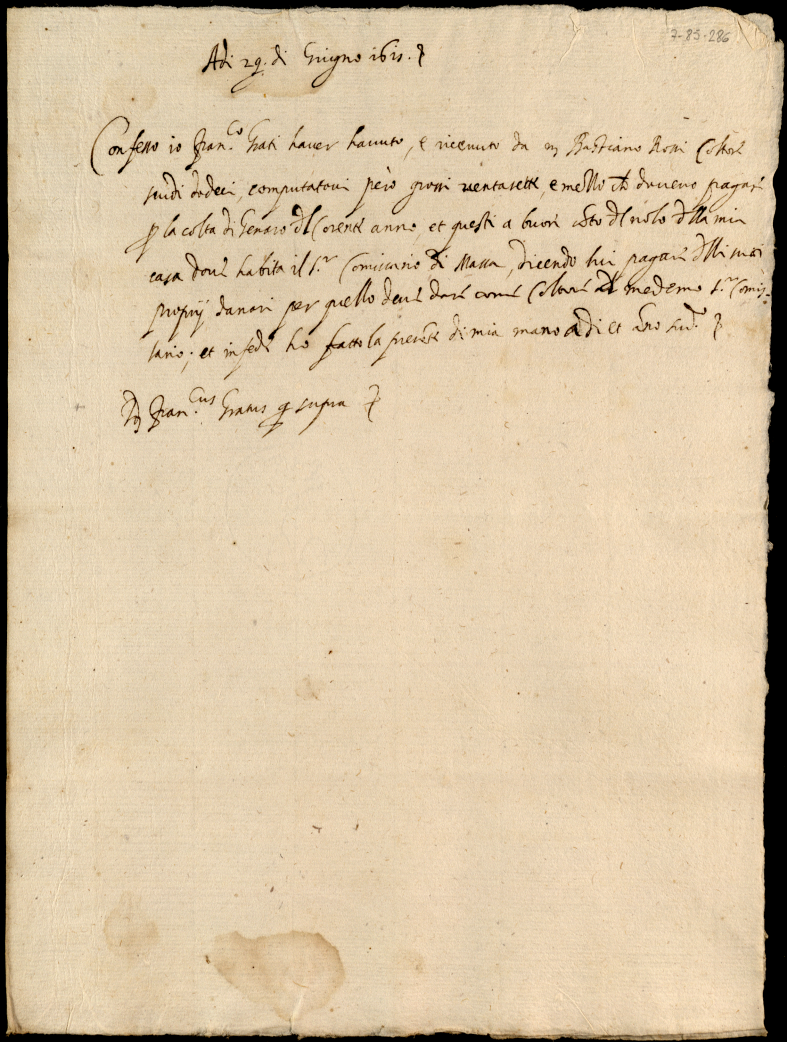 7-85-286
Adi 29. di Giugno 1615.
Confesso io Fran.co Grati haver havuto, e ricevuto da m Bastiano Rossi Collore
scudi dodeci, computatovi però grossi ventasette, e mezzo che dovevo pagare
p la colta di Genaro dl Corente anno, et questi a buon coto dl nolo dlla mia
casa dove habita il S.r Comissario di Massa, dicendo lui pagare dlli suoi
proprij danari per quello deve dare come Collore al medemo S.r Comis-
sario; et in fede ho fatto la presente di mia mano adi et ano sud.o
Fran.cus Gratus q supra